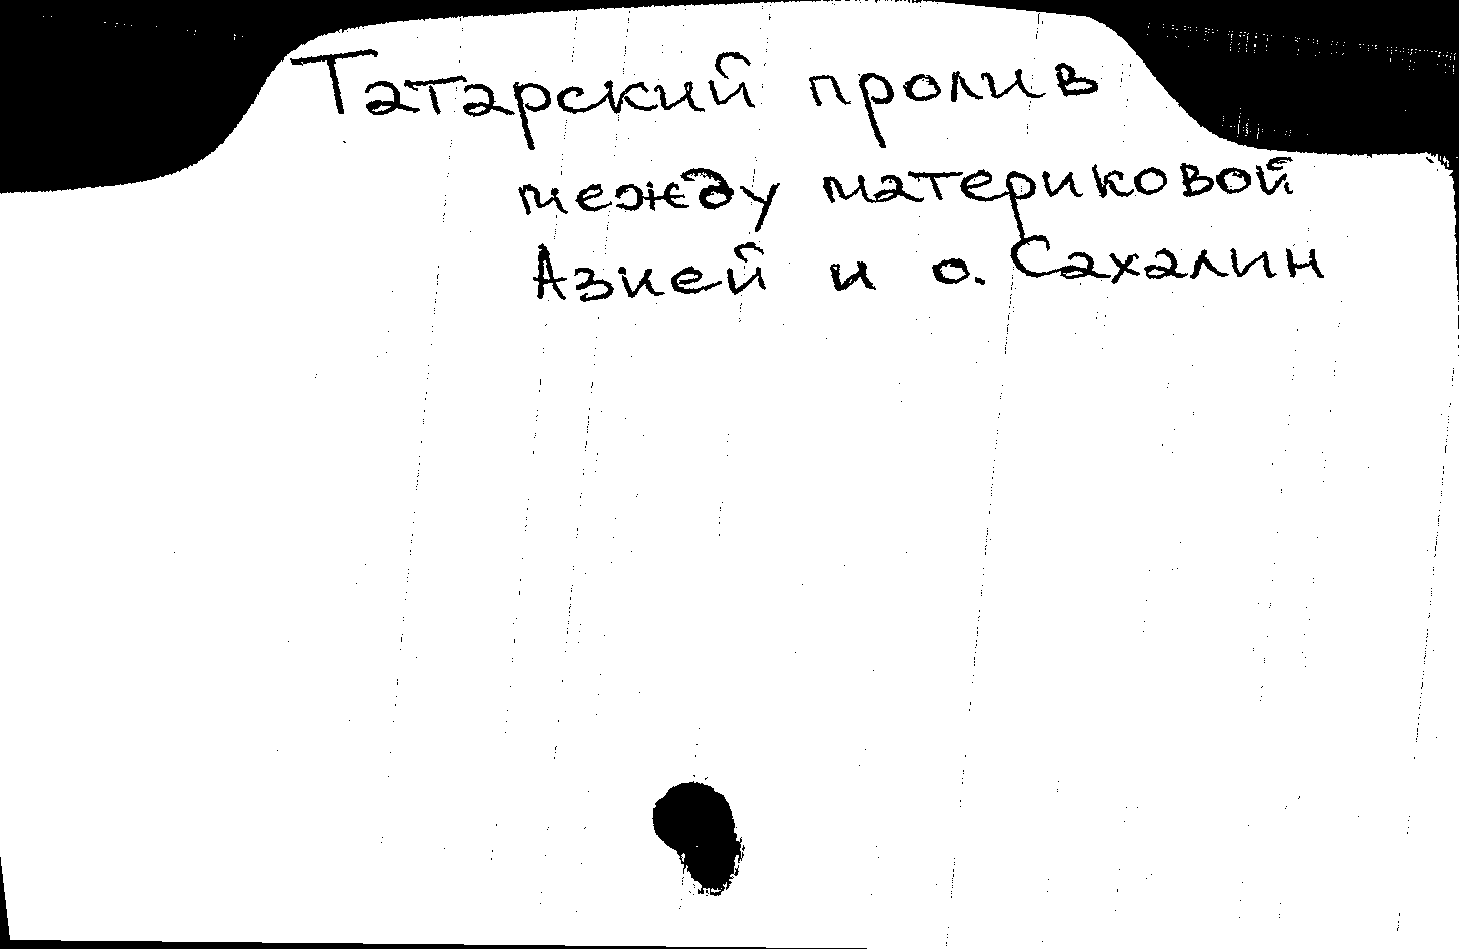 Татарский пролив
между материковой
Азией и о. Сахалин